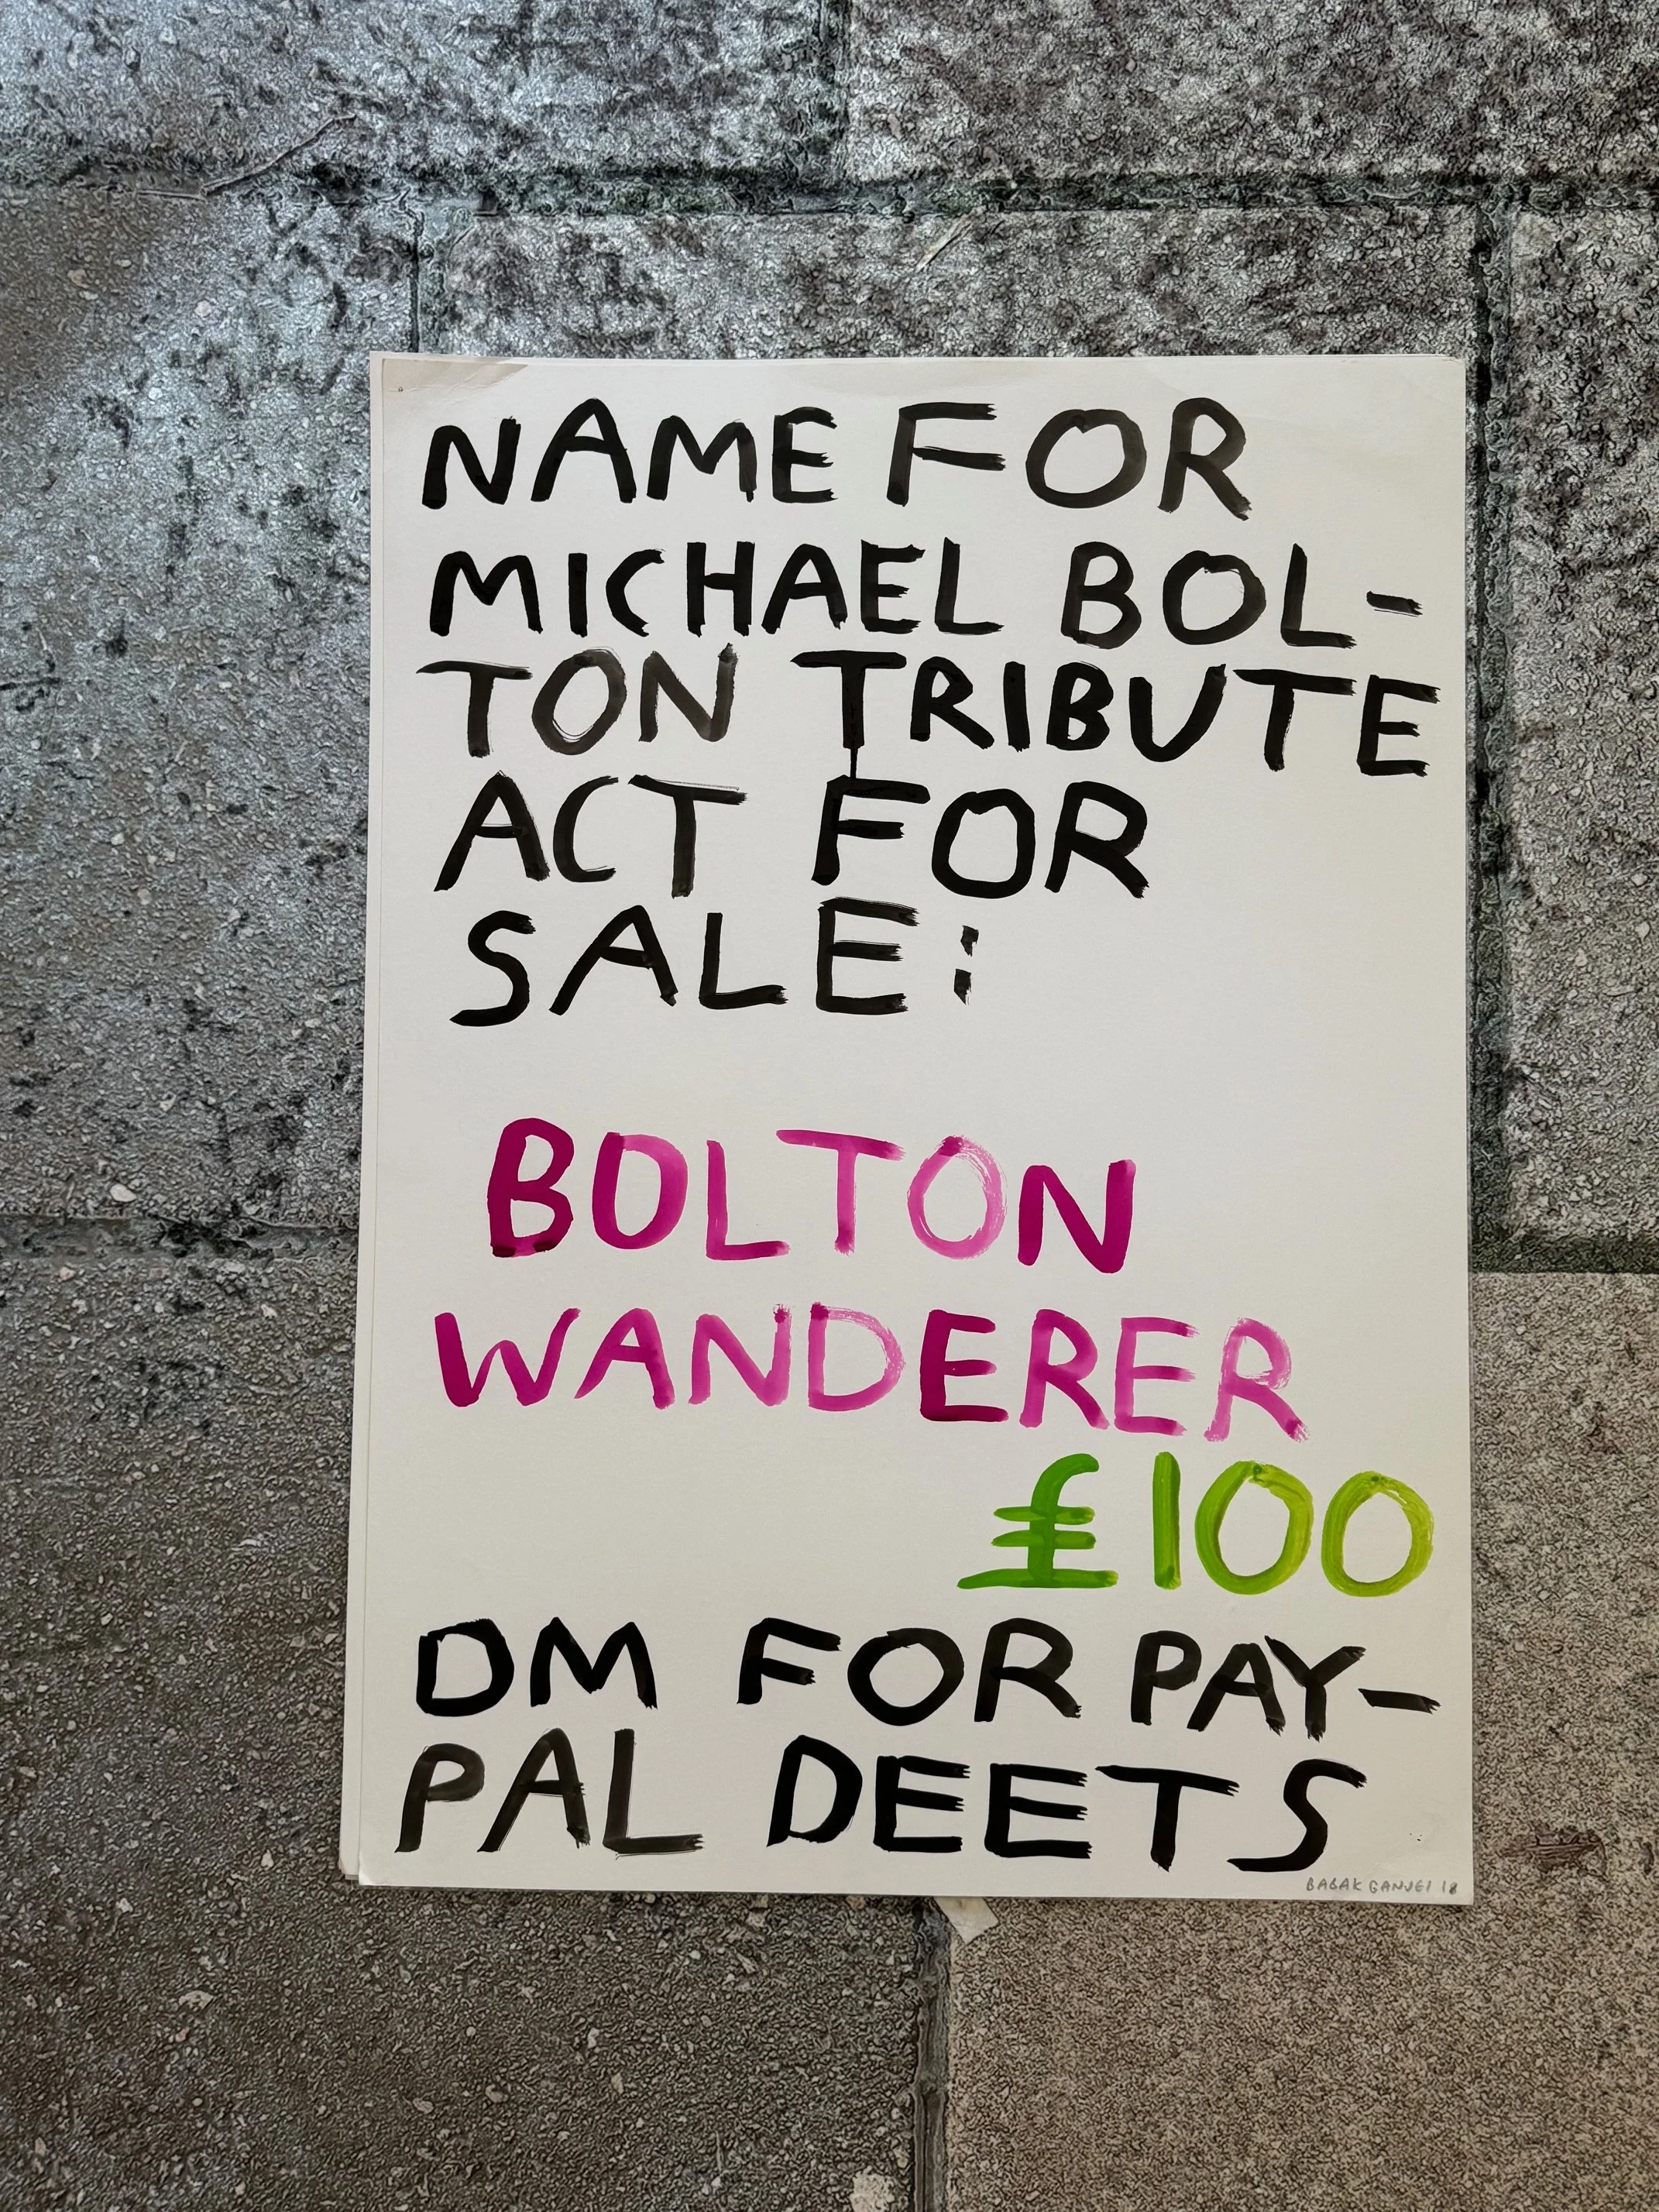 NAME FOR
MICHAEL BOL-
TON TRIBUTE
ACT FOR
SALE:
BOLTON
WANDERER
£100
DM FOR PAY-
PAL DEETS
BABAK GANJEI 18